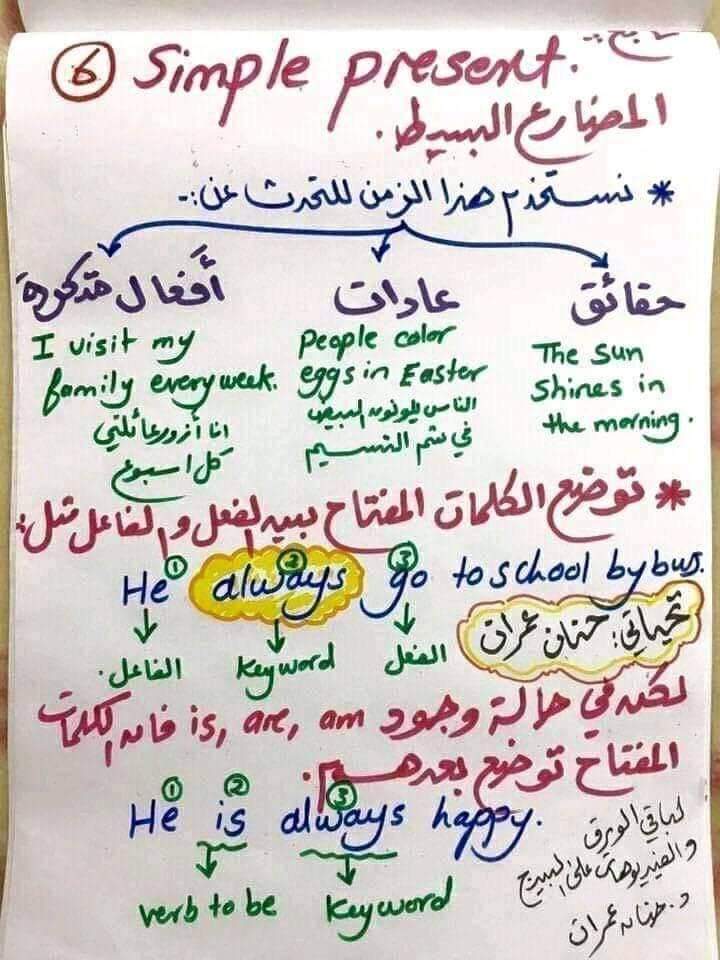 تابع:
6 Simple present.
المضارع البسيط.
* نستخدم هذا الزمن للتحدث عن:-
حقائق عادات أفعال متكررة
The sun shines in the morning.
People color eggs in Easter
الناس يلونون البيض في شم النسيم
I visit my family every week.
انا أزور عائلتي كل اسبوع
* توضع الكلمات المفتاح بين الفعل والفاعل مثل:
1 2 3
He always go to school by bus.
الفاعل. keyword الفعل
تحياتي: حنان عمران
لكن في حالة وجود is, are, am فان الكلمات
المفتاح توضع بعدهم.
1 2 3
He is always happy.
verb to be keyword
لباقي الورق
والفيديوهات على البيدج
د. حنان عمران